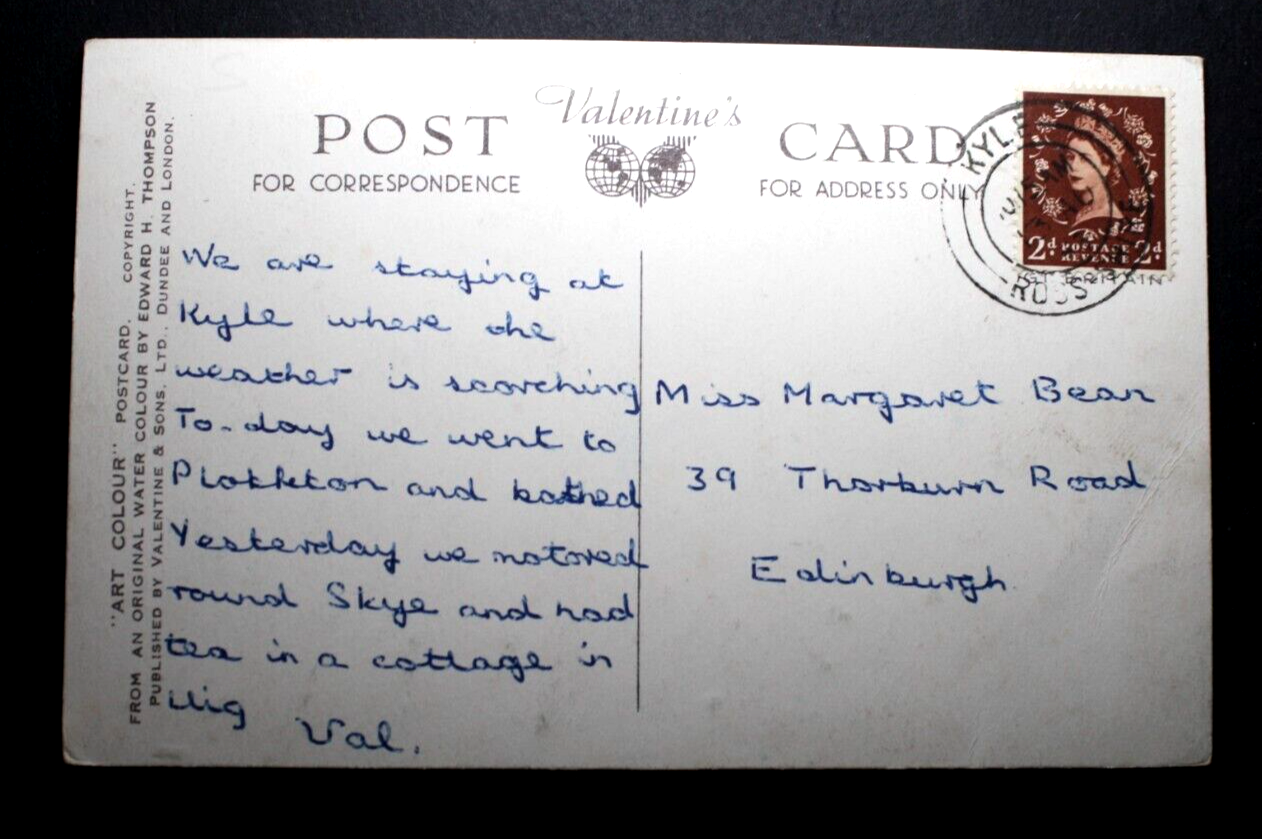 POST
Valentine's
CARD
FOR CORRESPONDENCE
FOR ADDRESS ONLY
"ART COLOUR" POSTCARD. COPYRIGHT.
FROM AN ORIGINAL WATER COLOUR BY EDWARD H. THOMPSON
PUBLISHED BY VALENTINE & SONS, LTD., DUNDEE AND LONDON.
We are staying at
Kyle where the
weather is scorching
To-day we went to
Plokkton and bathed
Yesterday we motored
round Skye and had
tea in a cottage in
Uig
Val.
Miss Margaret Bean
39 Thorburn Road
Edinburgh.
KYLE
ROSS
2d POSTAGE REVENUE 2d
GT. BRITAIN